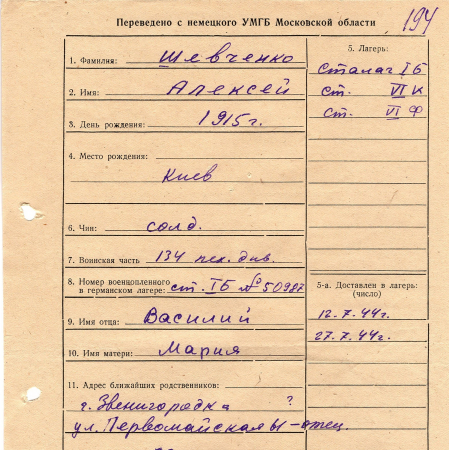 Переведено с немецкого УМГБ Московской области
194
1. Фамилия: Шевченко
2. Имя: Алексей
3. День рождения: 1915 г.
4. Место рождения:
Киев
6. Чин: солд.
7. Воинская часть 134 пех. див.
8. Номер военнопленного
в германском лагере: ст. IБ № 50987
9. Имя отца: Василий
10. Имя матери: Мария
11. Адрес ближайших родственников:
г. Звенигородка ?
ул. Первомайская 61 - отец.
5. Лагерь:
Сталаг IБ
ст. VI К
ст. VI Ф
5-а. Доставлен в лагерь:
(число)
12.7.44г.
27.7.44г.